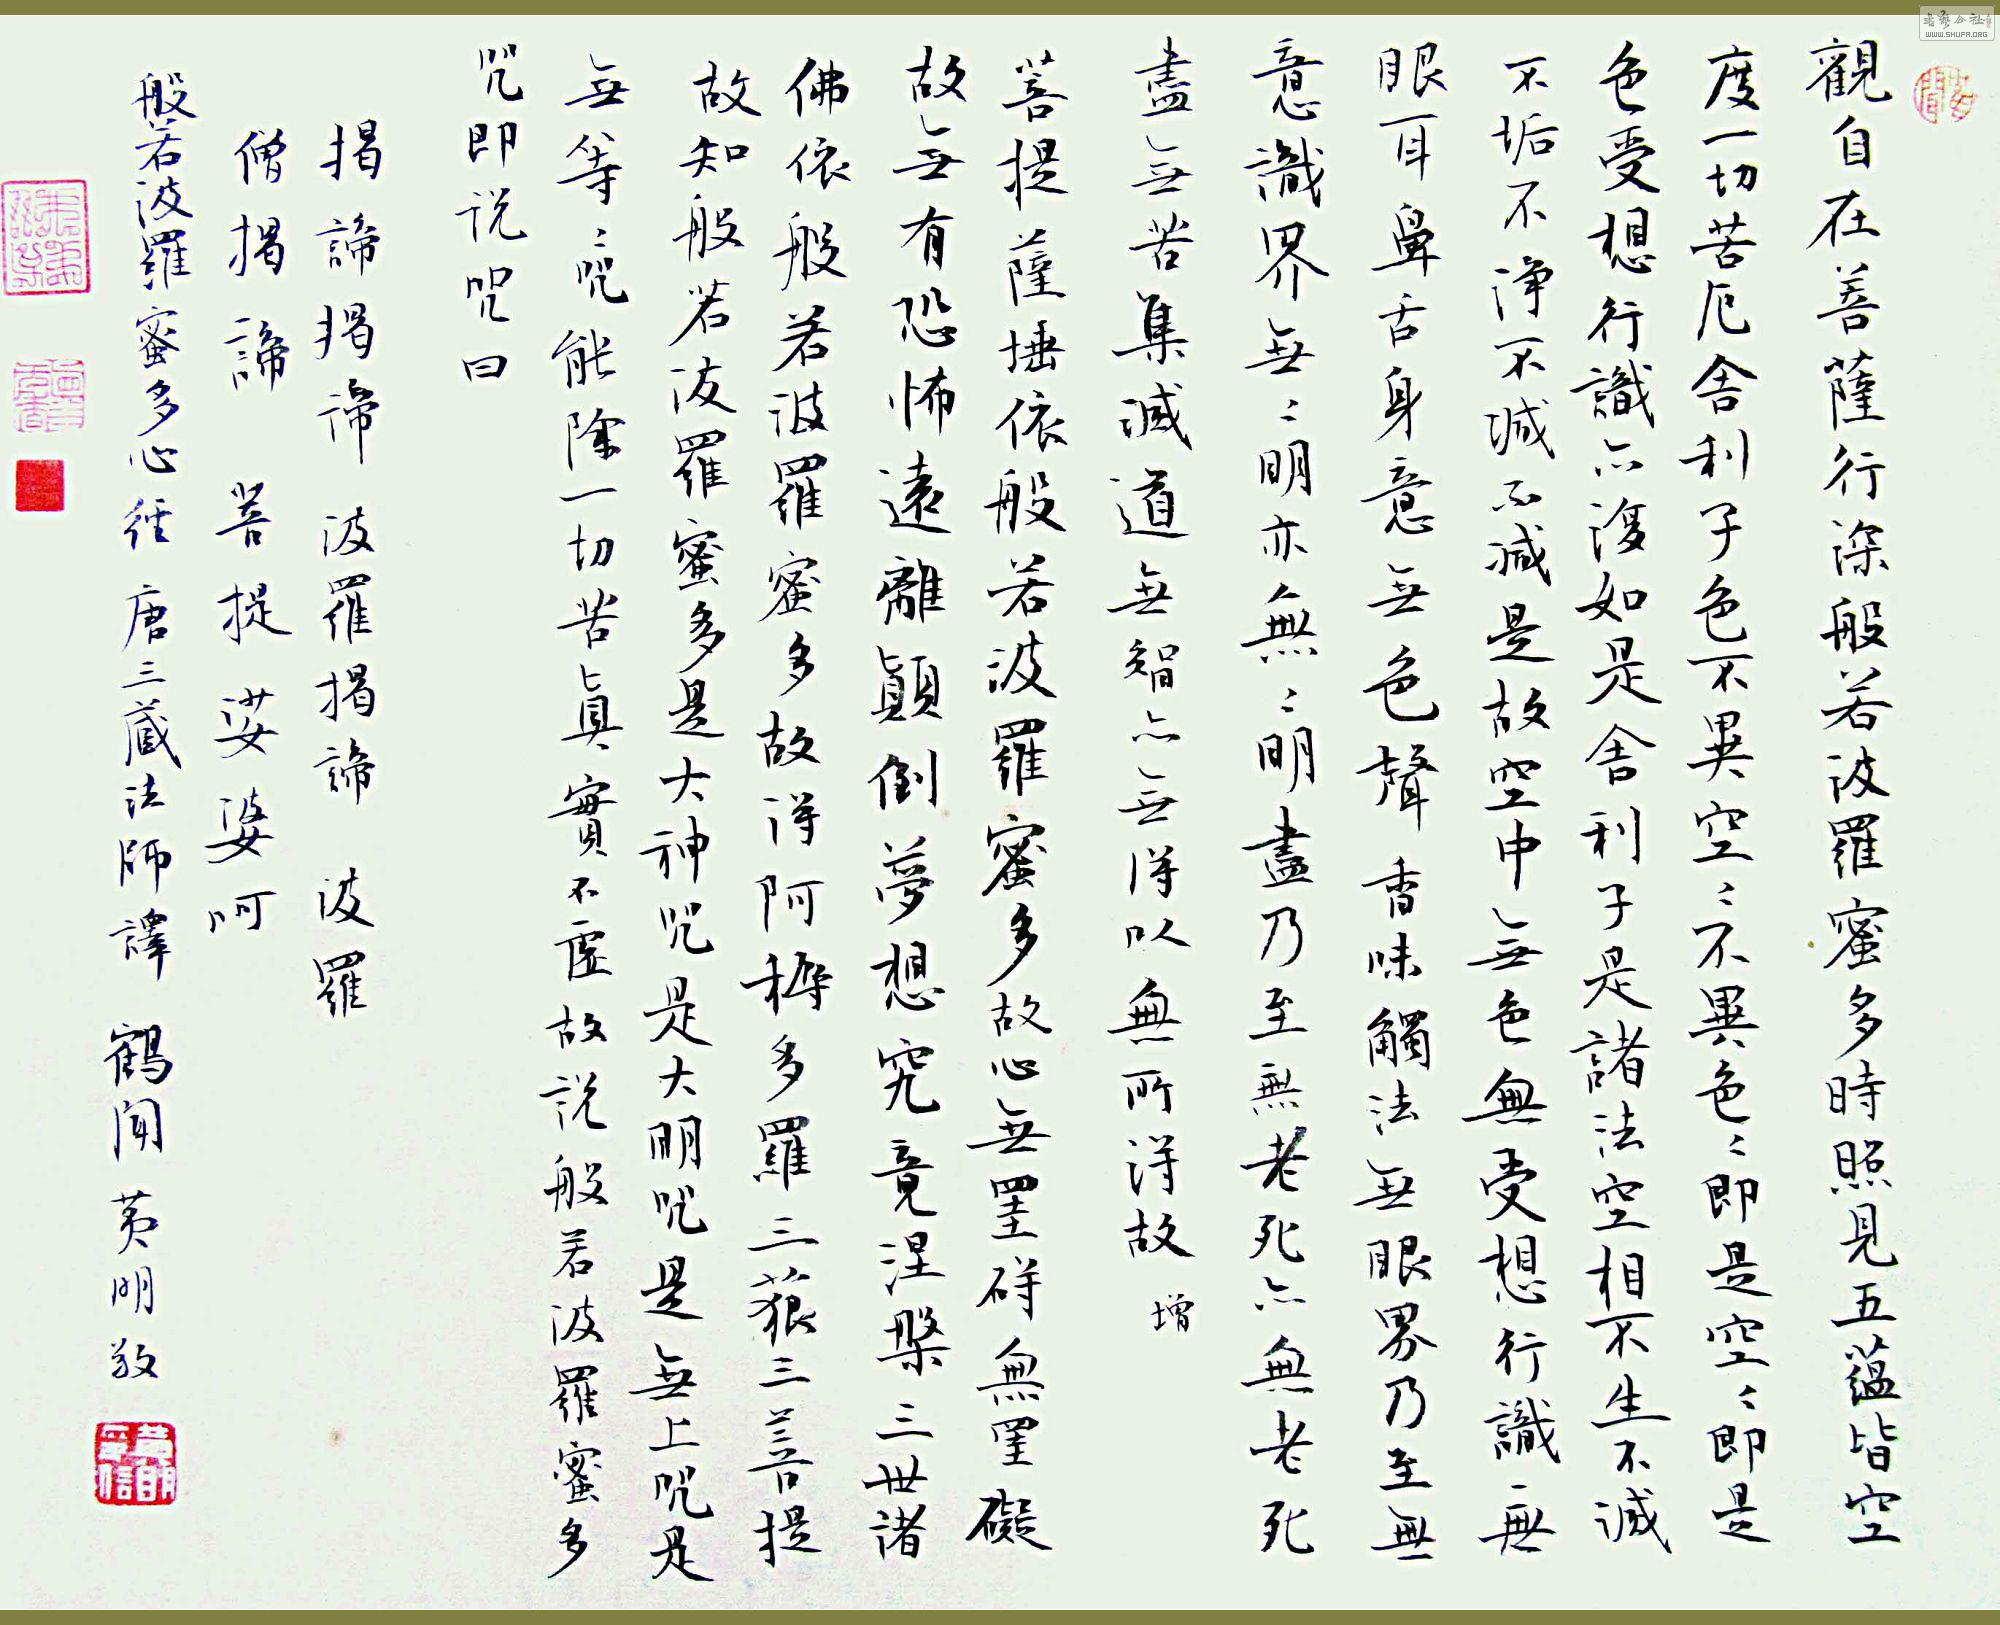 觀自在菩薩行深般若波羅蜜多時照見五蘊皆空
度一切苦厄舍利子色不異空〻不異色〻即是空〻即是
色受想行識亦復如是舍利子是諸法空相不生不滅
不垢不淨不減不減是故空中無色無受想行識無
眼耳鼻舌身意無色聲香味觸法無眼界乃至無
意識界無〻明亦無〻明盡乃至無老死亦無老死
盡無苦集滅道無智亦無得以無所得故 增
菩提薩埵依般若波羅蜜多故心無罣碍無罣礙
故無有恐怖遠離顛倒夢想究竟涅槃三世諸
佛依般若波羅蜜多故得阿耨多羅三藐三菩提
故知般若波羅蜜多是大神咒是大明咒是無上咒是
無等〻咒能除一切苦真實不虛故説般若波羅蜜多
咒即説咒曰
揭諦揭諦 波羅揭諦 波羅
僧揭諦 菩提娑婆呵
般若波羅蜜多心經 唐三藏法師譯 鶴聞 黄明敬
黄明印信
WWW.SHUFA.ORG